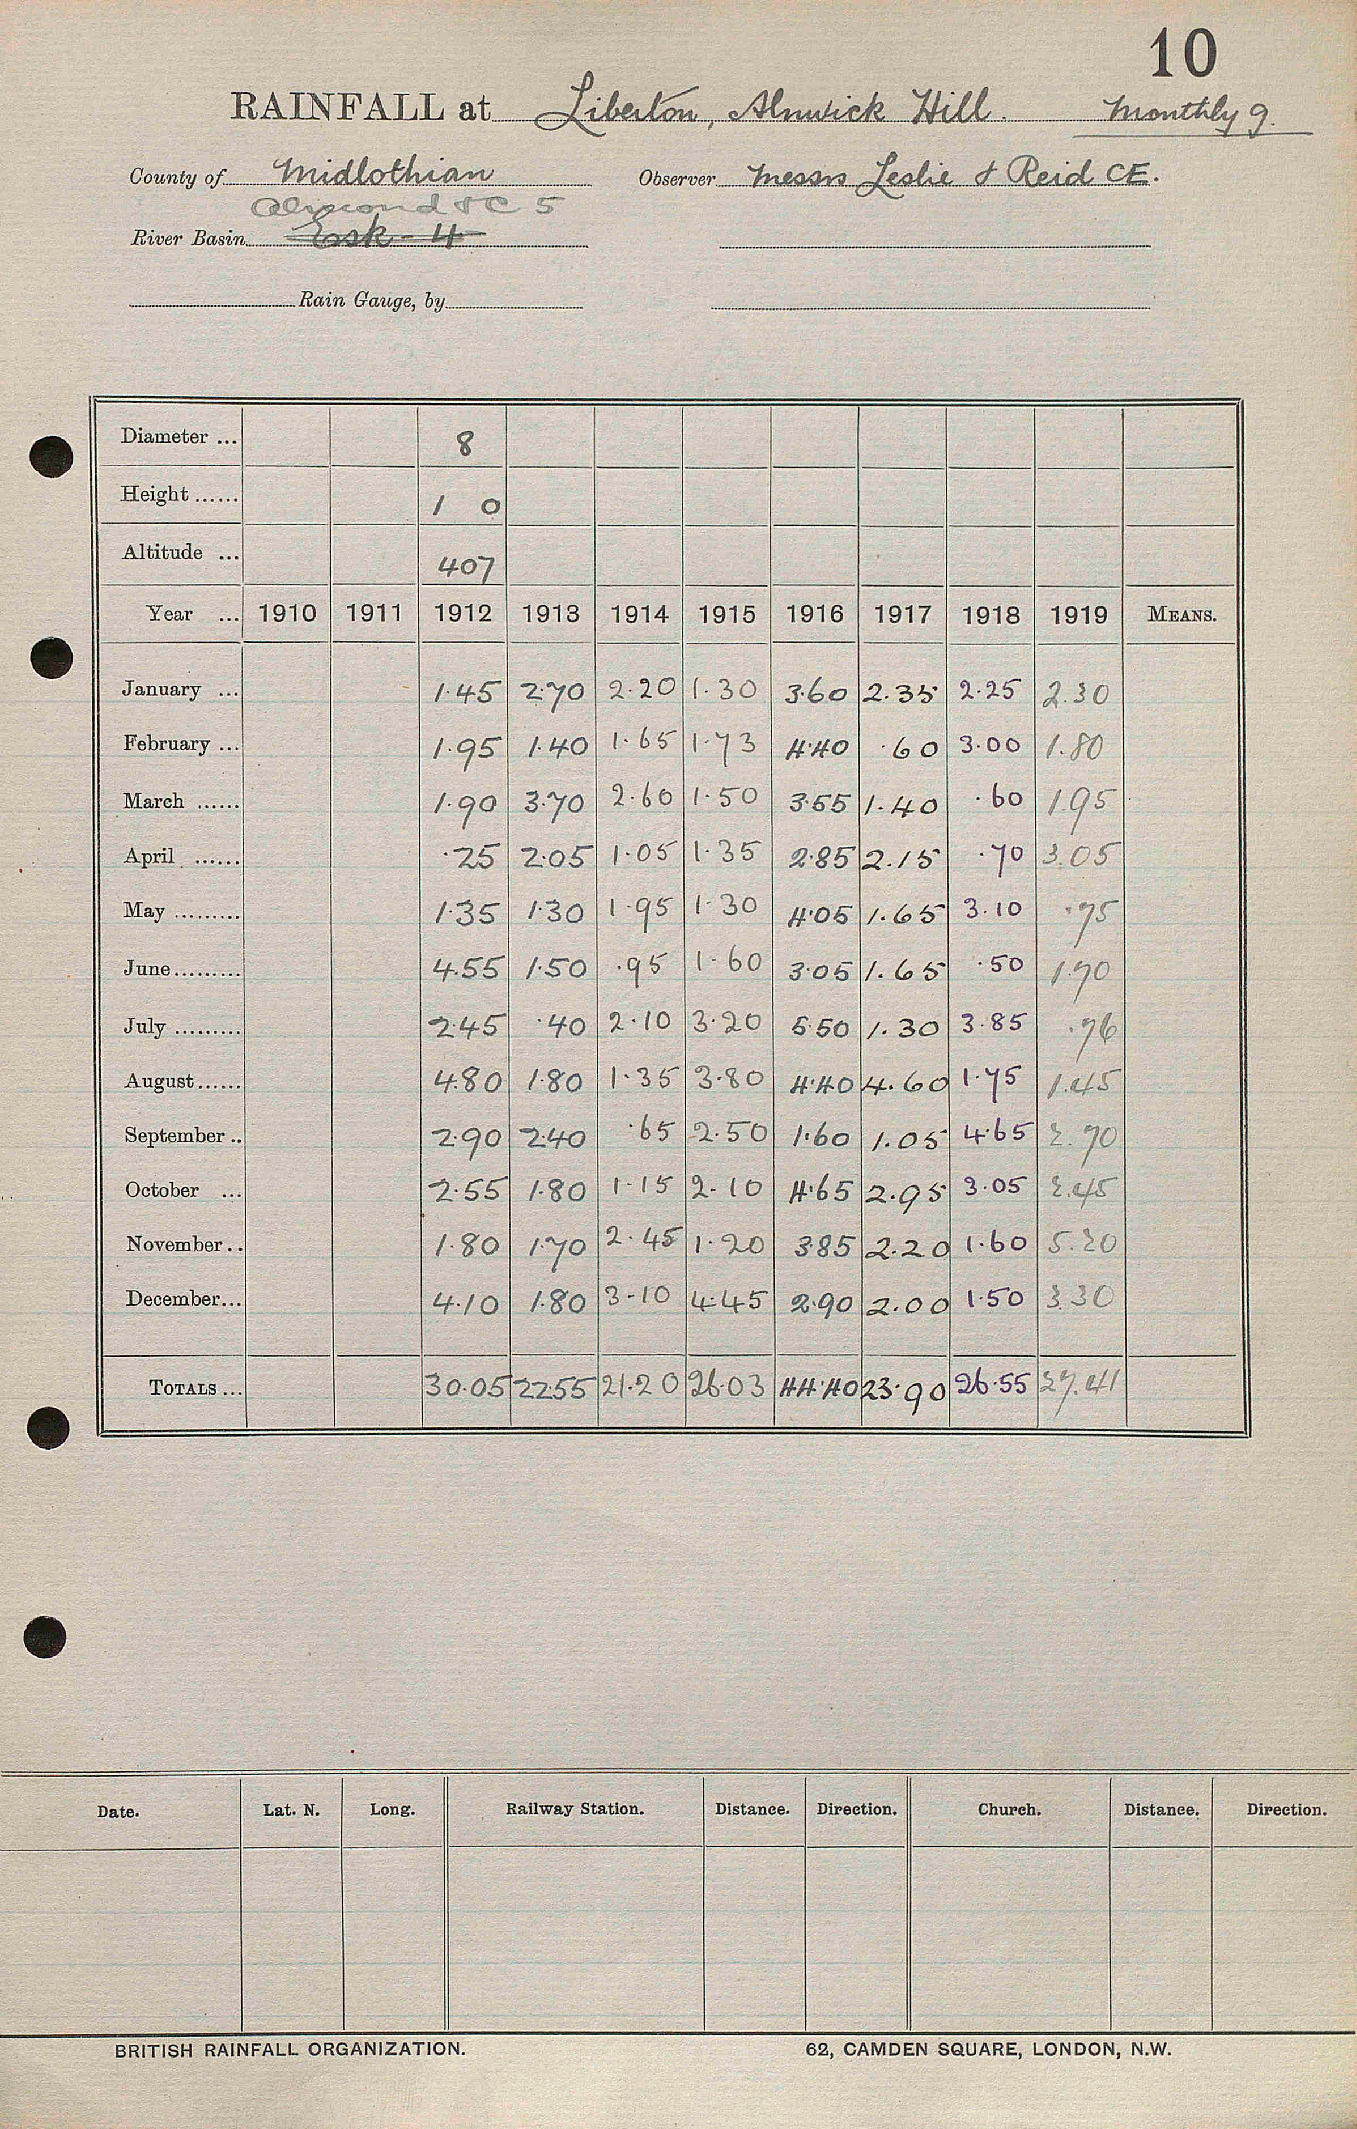 10
RAINFALL at Liberton, Alnwick Hill. Monthly 9.
County of Midlothian Observer Messrs Leslie & Reid CE.
Almond &C 5
River Basin Esk - 4
Rain Gauge, by
Diameter ... 8
Height ...... 1 0
Altitude ... 407
Year ... 1910 1911 1912 1913 1914 1915 1916 1917 1918 1919 MEANS.
January ... 1.45 2.70 2.20 1.30 3.60 2.35 2.25 2.30
February ... 1.95 1.40 1.65 1.73 4.40 .60 3.00 1.80
March ...... 1.90 3.70 2.60 1.50 3.55 1.40 .60 1.95
April ...... .25 2.05 1.05 1.35 2.85 2.15 .70 3.05
May ......... 1.35 1.30 1.95 1.30 4.05 1.65 3.10 .75
June......... 4.55 1.50 .95 1.60 3.05 1.65 .50 1.70
July ......... 2.45 .40 2.10 3.20 5.50 1.30 3.85 .76
August...... 4.80 1.80 1.35 3.80 4.40 4.60 1.75 1.45
September .. 2.90 2.40 .65 2.50 1.60 1.05 4.65 2.70
October ... 2.55 1.80 1.15 2.10 4.65 2.95 3.05 2.45
November.. 1.80 1.70 2.45 1.20 3.85 2.20 1.60 5.20
December... 4.10 1.80 3.10 4.45 2.90 2.00 1.50 3.30
TOTALS ... 30.05 22.55 21.20 26.03 44.40 23.90 26.55 27.41
Date. Lat. N. Long. Railway Station. Distance. Direction. Church. Distance. Direction.
BRITISH RAINFALL ORGANIZATION. 62, CAMDEN SQUARE, LONDON, N.W.